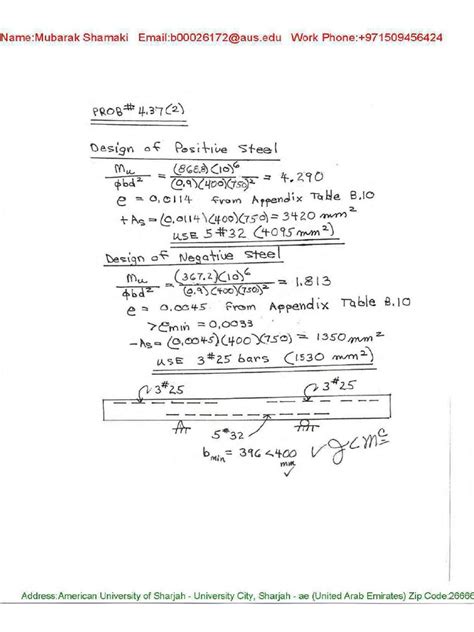 Name:Mubarak Shamaki   Email:b00026172@aus.edu   Work Phone:+971509456424
PROB# 4.37(2)
Design of Positive Steel
Mu/ϕbd² = (868.8)(10)⁶/(0.9)(400)(750)² = 4.290
ρ = 0.0114 from Appendix Table B.10
+As = (0.0114)(400)(750) = 3420 mm²
USE 5#32 (4095 mm²)
Design of Negative Steel
Mu/ϕbd² = (367.2)(10)⁶/(0.9)(400)(750)² = 1.813
ρ = 0.0045 from Appendix Table B.10
>ρmin = 0.0033
-As = (0.0045)(400)(750) = 1350 mm²
USE 3#25 bars (1530 mm²)
3#25   3#25
5#32
bmin = 396<400 mm ✓ JCMᶜ
✓
Address:American University of Sharjah - University City, Sharjah - ae (United Arab Emirates) Zip Code:26666